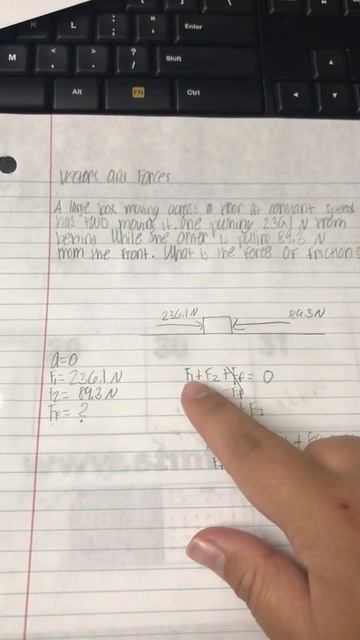 K
L
Enter
M
Shift
Alt
FN
Ctrl
Vectors and Forces
A large box moving across a floor at constant speed
has two moving it. One pushing 236.1 N from
behind while the other is pulling 89.3 N
from the front. What is the force of friction?
236.1N
89.3N
a=0
F1 = 236.1 N
F2 = 89.3 N
Ff = ?
F1 + F2 + Ff = 0
F2